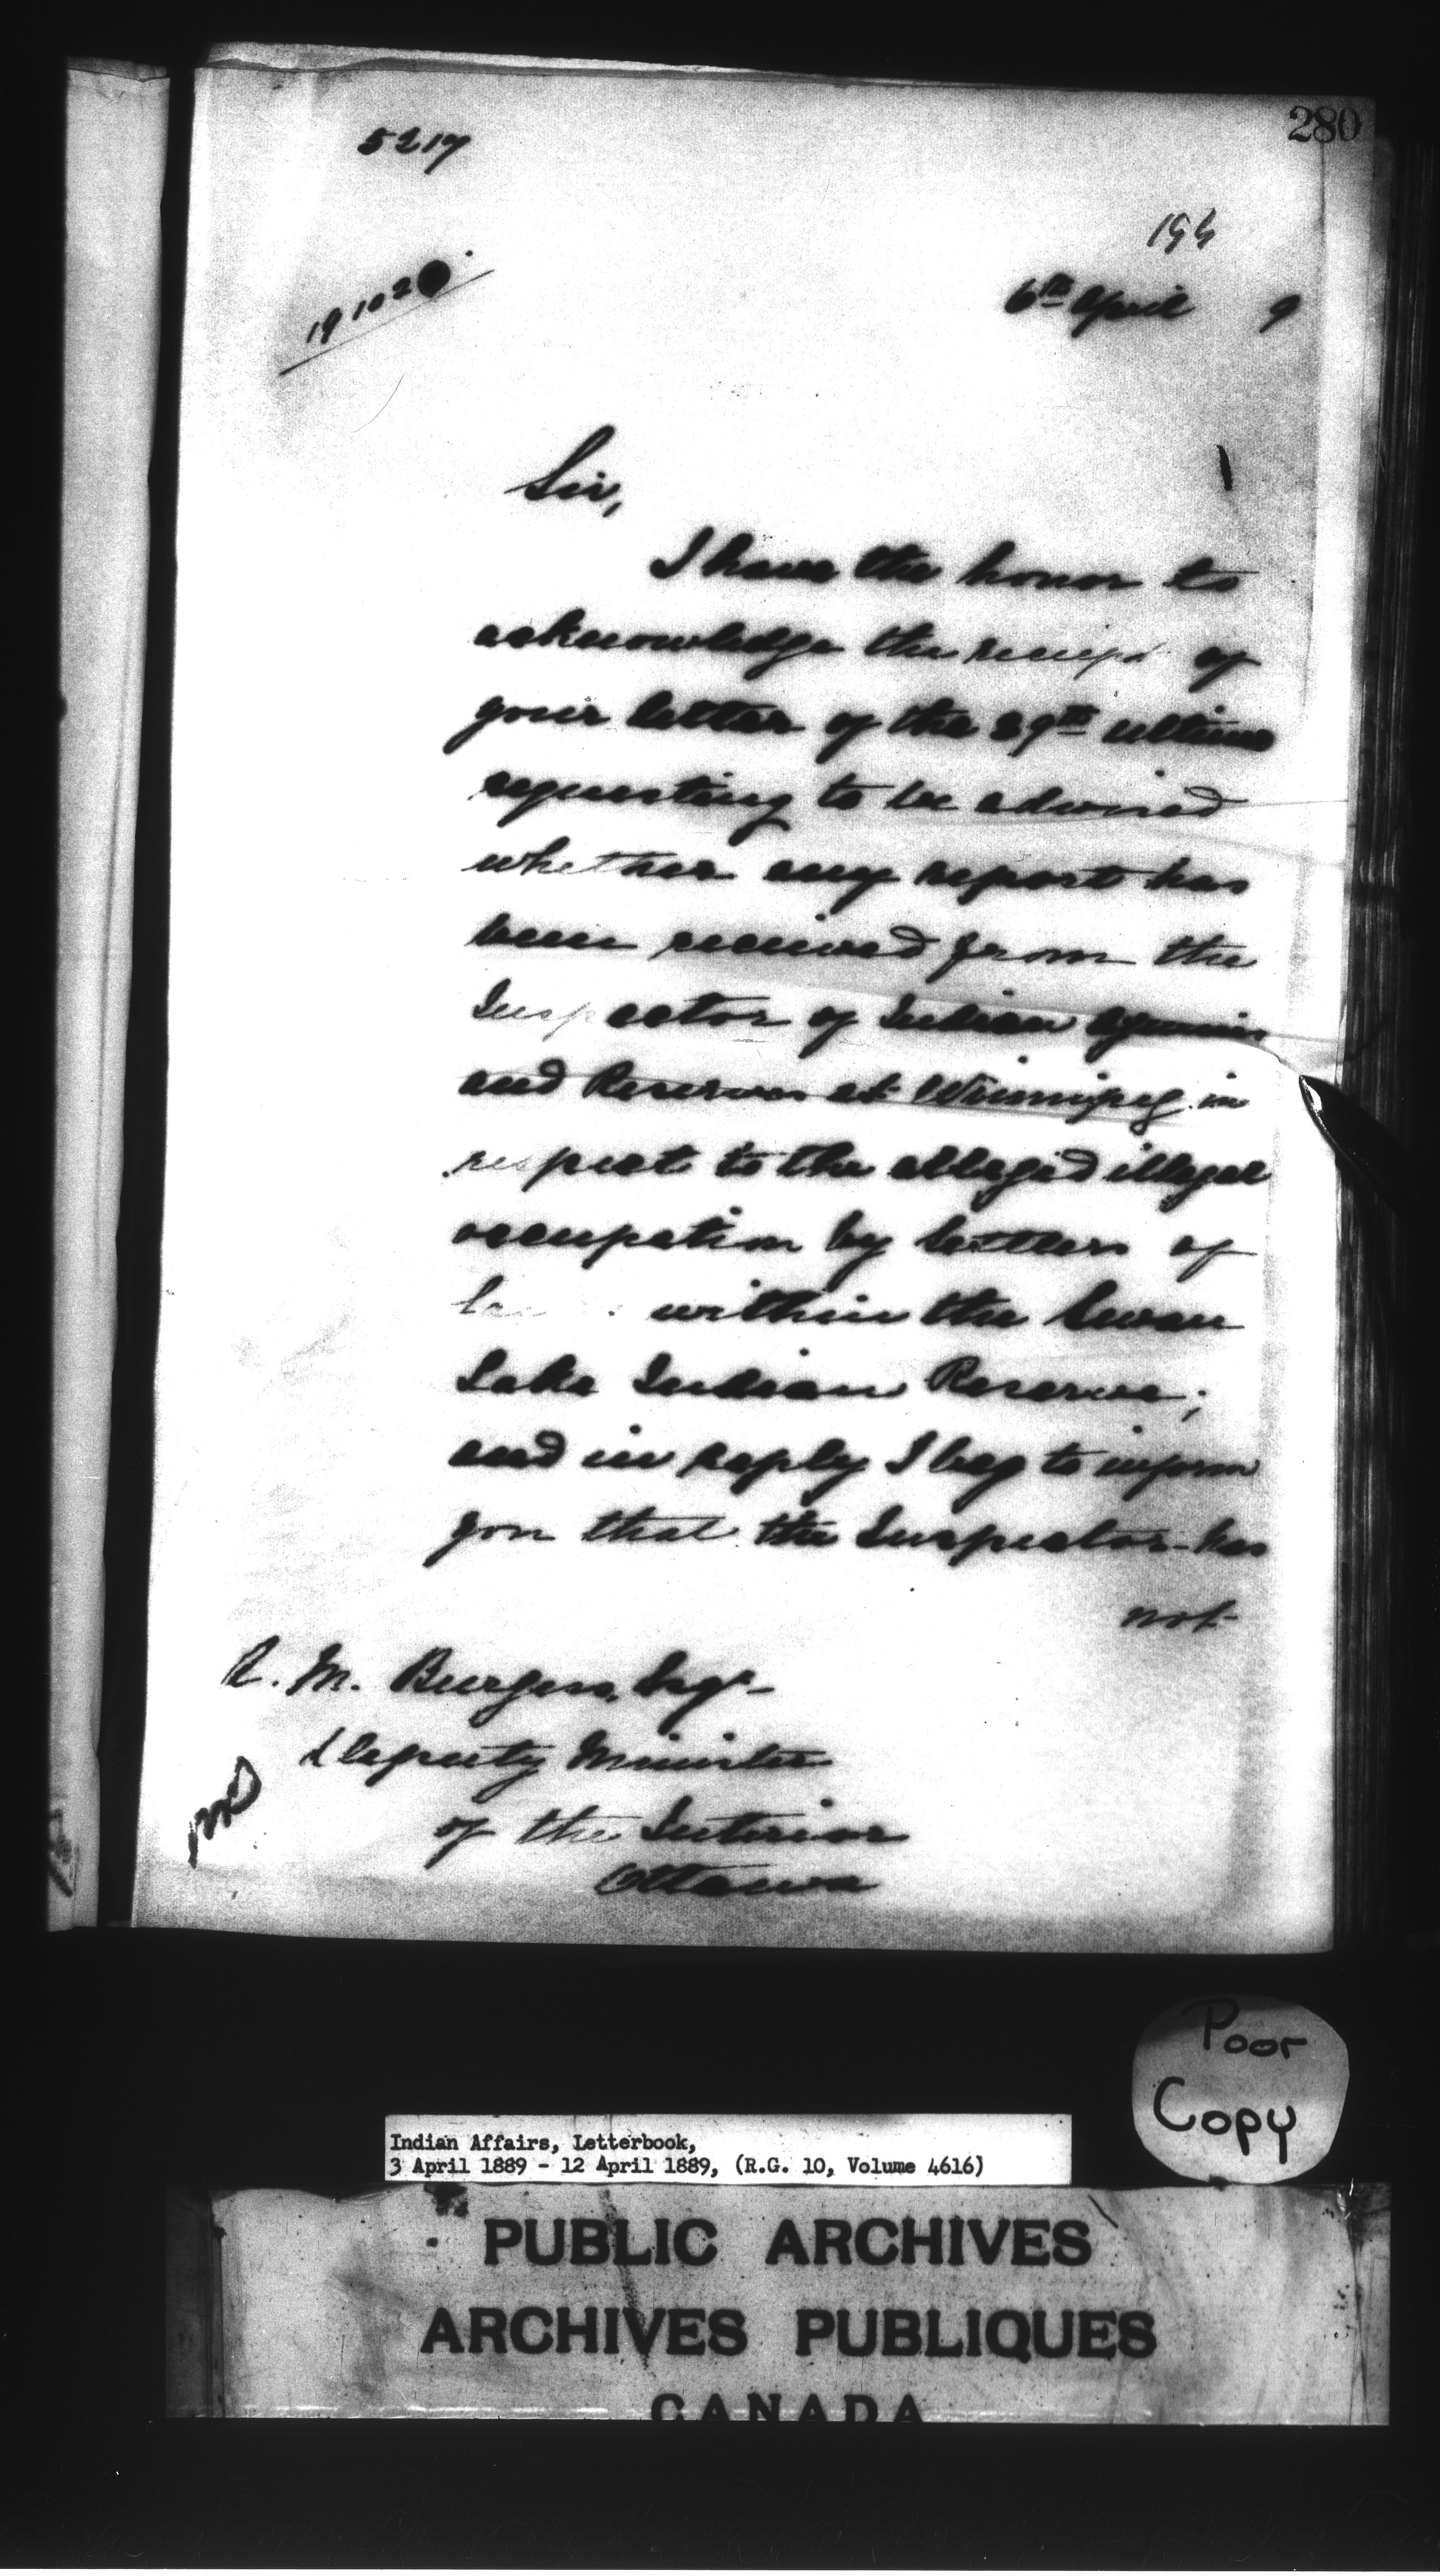 280
5217
6th April 9
Sir,
I have the honor to
acknowledge the receipt of
your letter of the 29th ultimo
requesting to be advised
whether any report has
been received from the
Inspector of Indian Agencies
and Reserves at Winnipeg in
respect to the alleged illegal
occupation by settlers of
within the Swan
Lake Indian Reserve;
and in reply I beg to inform
you that the Inspector has
not
M. Burgess, Esqr
Deputy Minister
of the Interior
Ottawa
Poor
Copy
Indian Affairs, Letterbook,
3 April 1889 - 12 April 1889, (R.G. 10, Volume 4616)
PUBLIC ARCHIVES
ARCHIVES PUBLIQUES
CANADA